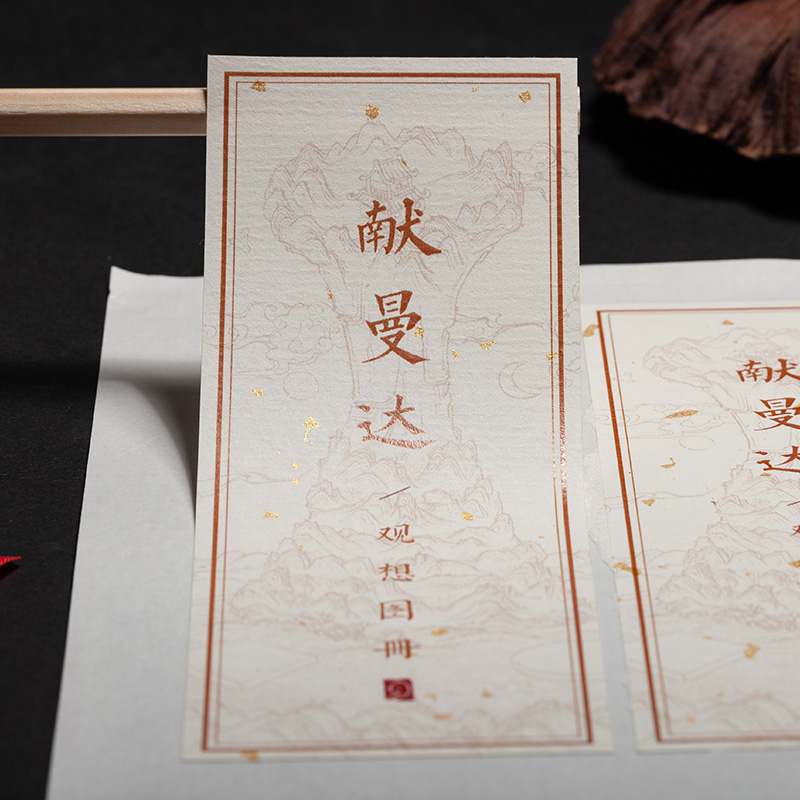 献曼达
/
观想图冊
献曼达
/
观